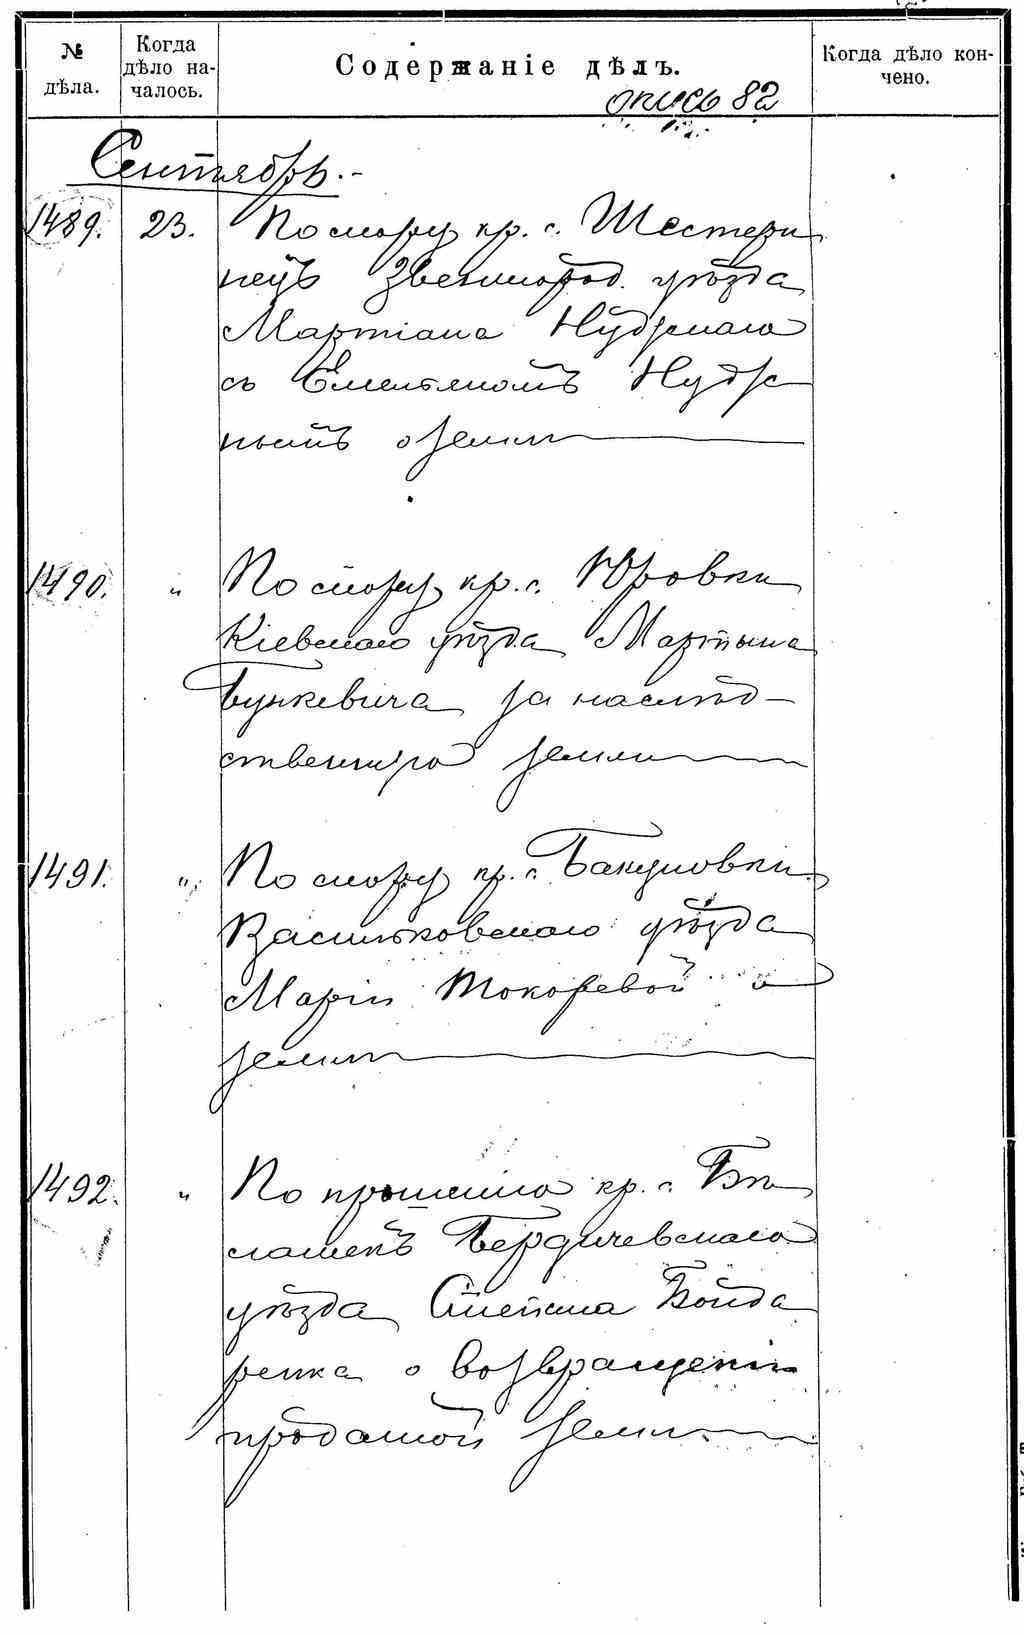 № дѣла.
Когда дѣло на-
чалось.
Содержаніе дѣлъ.
Когда дѣло кон-
чено.
опись 82
Сентябрь.
1489. 23. По спору кр. с. Шестери
нецъ Звенигород. уѣзда
Мартіана Нудьнаго
съ Емельяномъ Нудь
нымъ о землѣ
1490. " По спору кр. с. Юровки
Кіевскаго уѣзда Мартына
Буткевича за наслѣд-
ственную землю
1491. " По спору кр. с. Бакумовки
Васильковскаго уѣзда
Маріи Токоревой о
землѣ
1492. " По прошенію кр. с. Бѣ
лашекъ Бердичевскаго
уѣзда Степана Бонда
ренка о возвращеніи
проданной земли